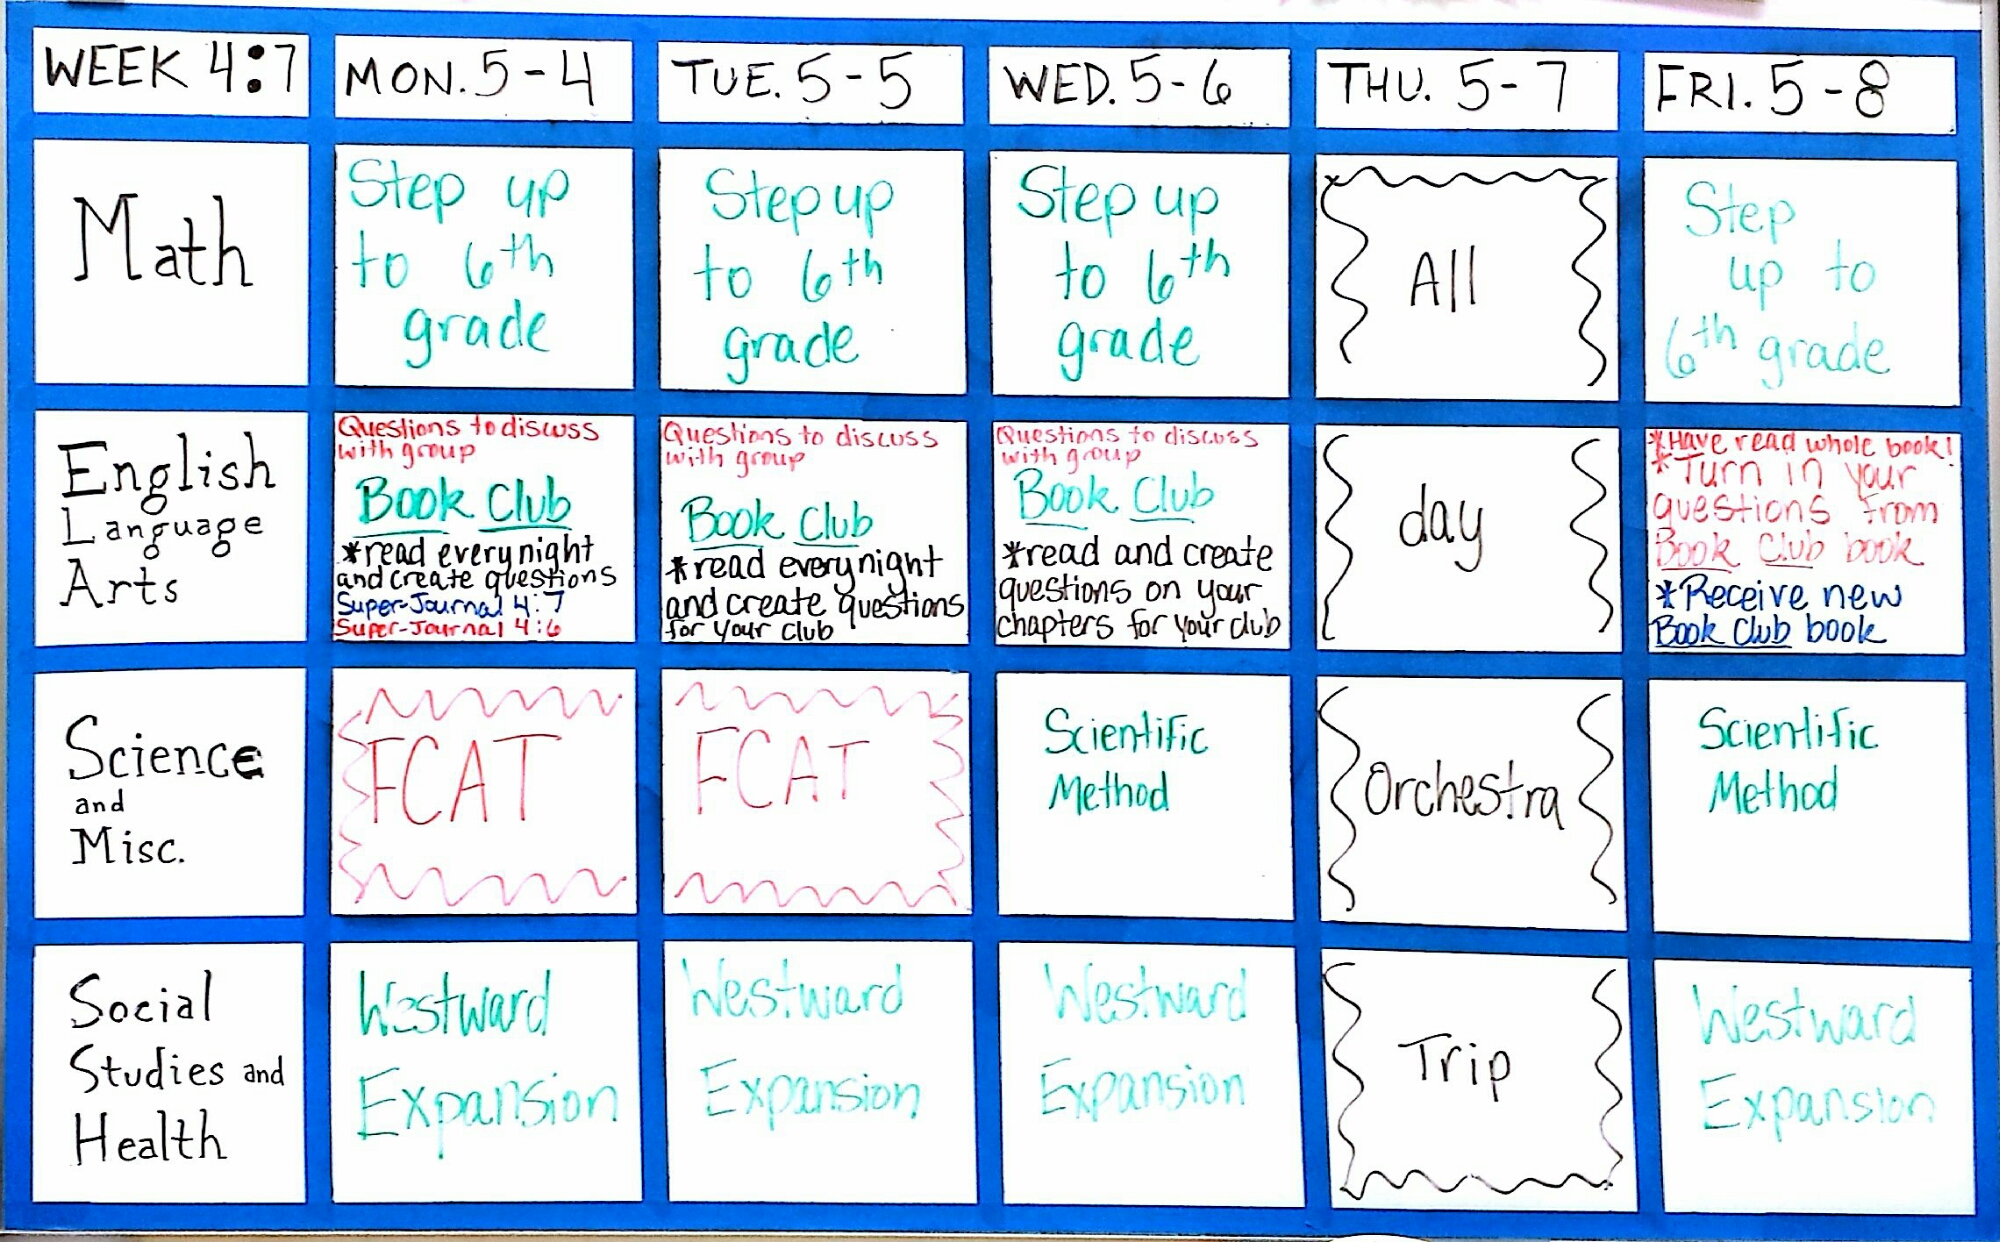 WEEK 4:7
MON. 5-4
TUE. 5-5
WED. 5-6
THU. 5-7
FRI. 5-8
Math
Step up
to 6th
grade
Step up
to 6th
grade
Step up
to 6th
grade
All
Step
up to
6th grade
English
Language
Arts
Questions to discuss
with group
Book Club
*read every night
and create questions
Super-Journal 4:7
Super-Journal 4:6
Questions to discuss
with group
Book Club
*read every night
and create questions
for your club
Questions to discuss
with group
Book Club
*read and create
questions on your
chapters for your club
day
*Have read whole book!
*Turn in your
questions from
Book Club book
*Receive new
Book Club book
Science
and
Misc.
FCAT
FCAT
Scientific
Method
Orchestra
Scientific
Method
Social
Studies and
Health
Westward
Expansion
Westward
Expansion
Westward
Expansion
Trip
Westward
Expansion